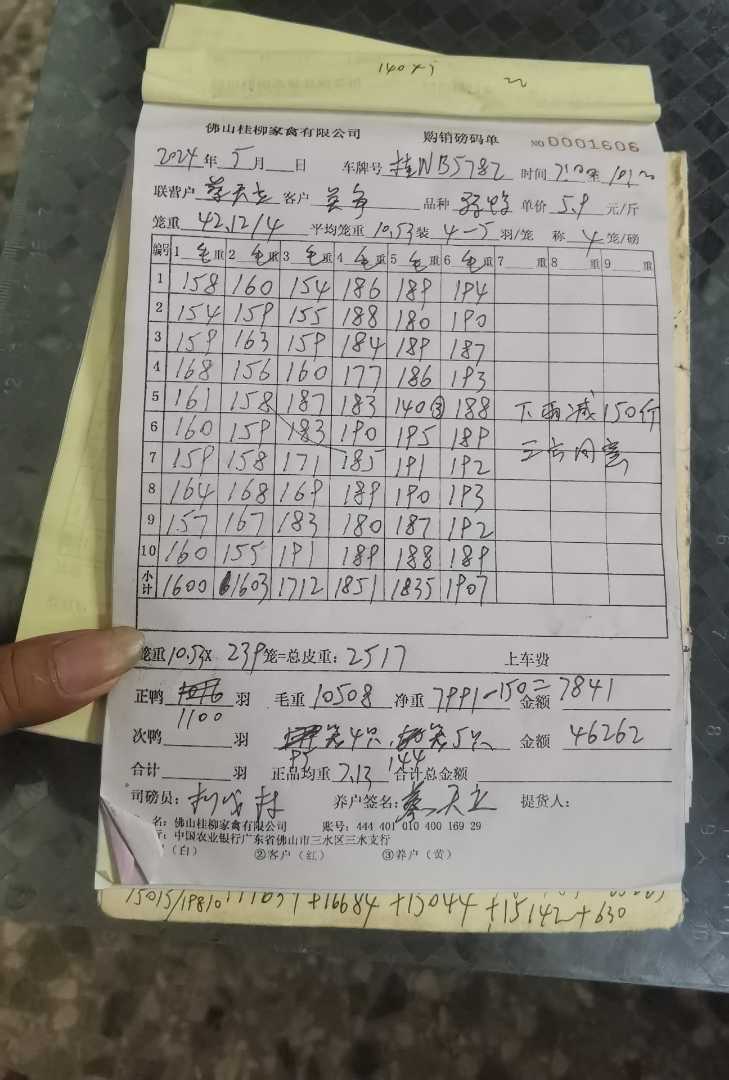 140斤
佛山桂柳家禽有限公司 购销磅码单 NO 0001606
2024年5月 日 车牌号 桂NB5782 时间
联营户 蔡天立 客户 品种 单价 5.9 元/斤
笼重 42.12/4 平均笼重 10.53 装 4-5 羽/笼 称 4 笼/磅
编号 1 毛重 2 毛重 3 毛重 4 毛重 5 毛重 6 毛重 7 重 8 重 9 重
1 158 160 154 186 189 194
2 154 159 155 188 180 190
3 159 163 159 184 189 187
4 168 156 160 177 186 193
5 161 158 187 183 140③ 188 下雨减150斤
6 160 159 183 190 195 189
7 159 158 171 185 191 192
8 164 168 169 189 190 193
9 157 167 183 180 187 192
10 160 155 191 189 188 189
小计 1600 1603 1712 1851 1835 1907
笼重 10.53X 239 笼=总皮重：2517 上车费
正鸭 羽 毛重 10508 净重 7991-150= 7841 金额
1100
次鸭 羽 笼4只 笼5只 金额 46262
95 144
合计 羽 正品均重 7.13 合计总金额
司磅员： 养户签名：蔡天立 提货人：
名：佛山桂柳家禽有限公司 账号：444 401 010 400 169 29
行：中国农业银行广东省佛山市三水区三水支行
（白） ②客户（红） ③养户（黄）
+16684 +13044 +15142 +630